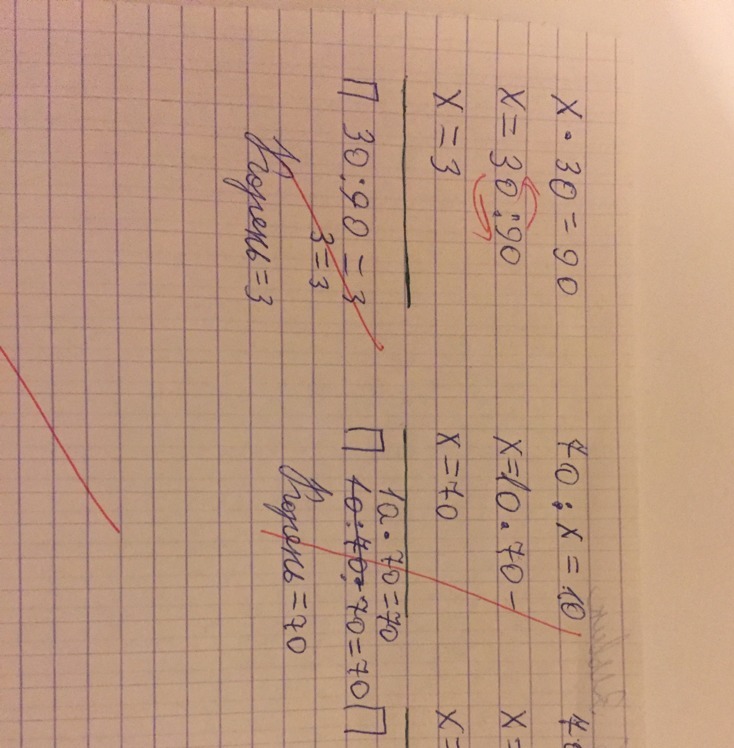 x · 30 = 90
x = 30 : 90
x = 3
П 30 : 90 = 3
3 = 3
Корень = 3
70 : x = 10
x = 10 · 70 –
x = 70
10 · 70 = 70
П 10 · 70 · 70 = 70
Корень = 70
x =
x =
П